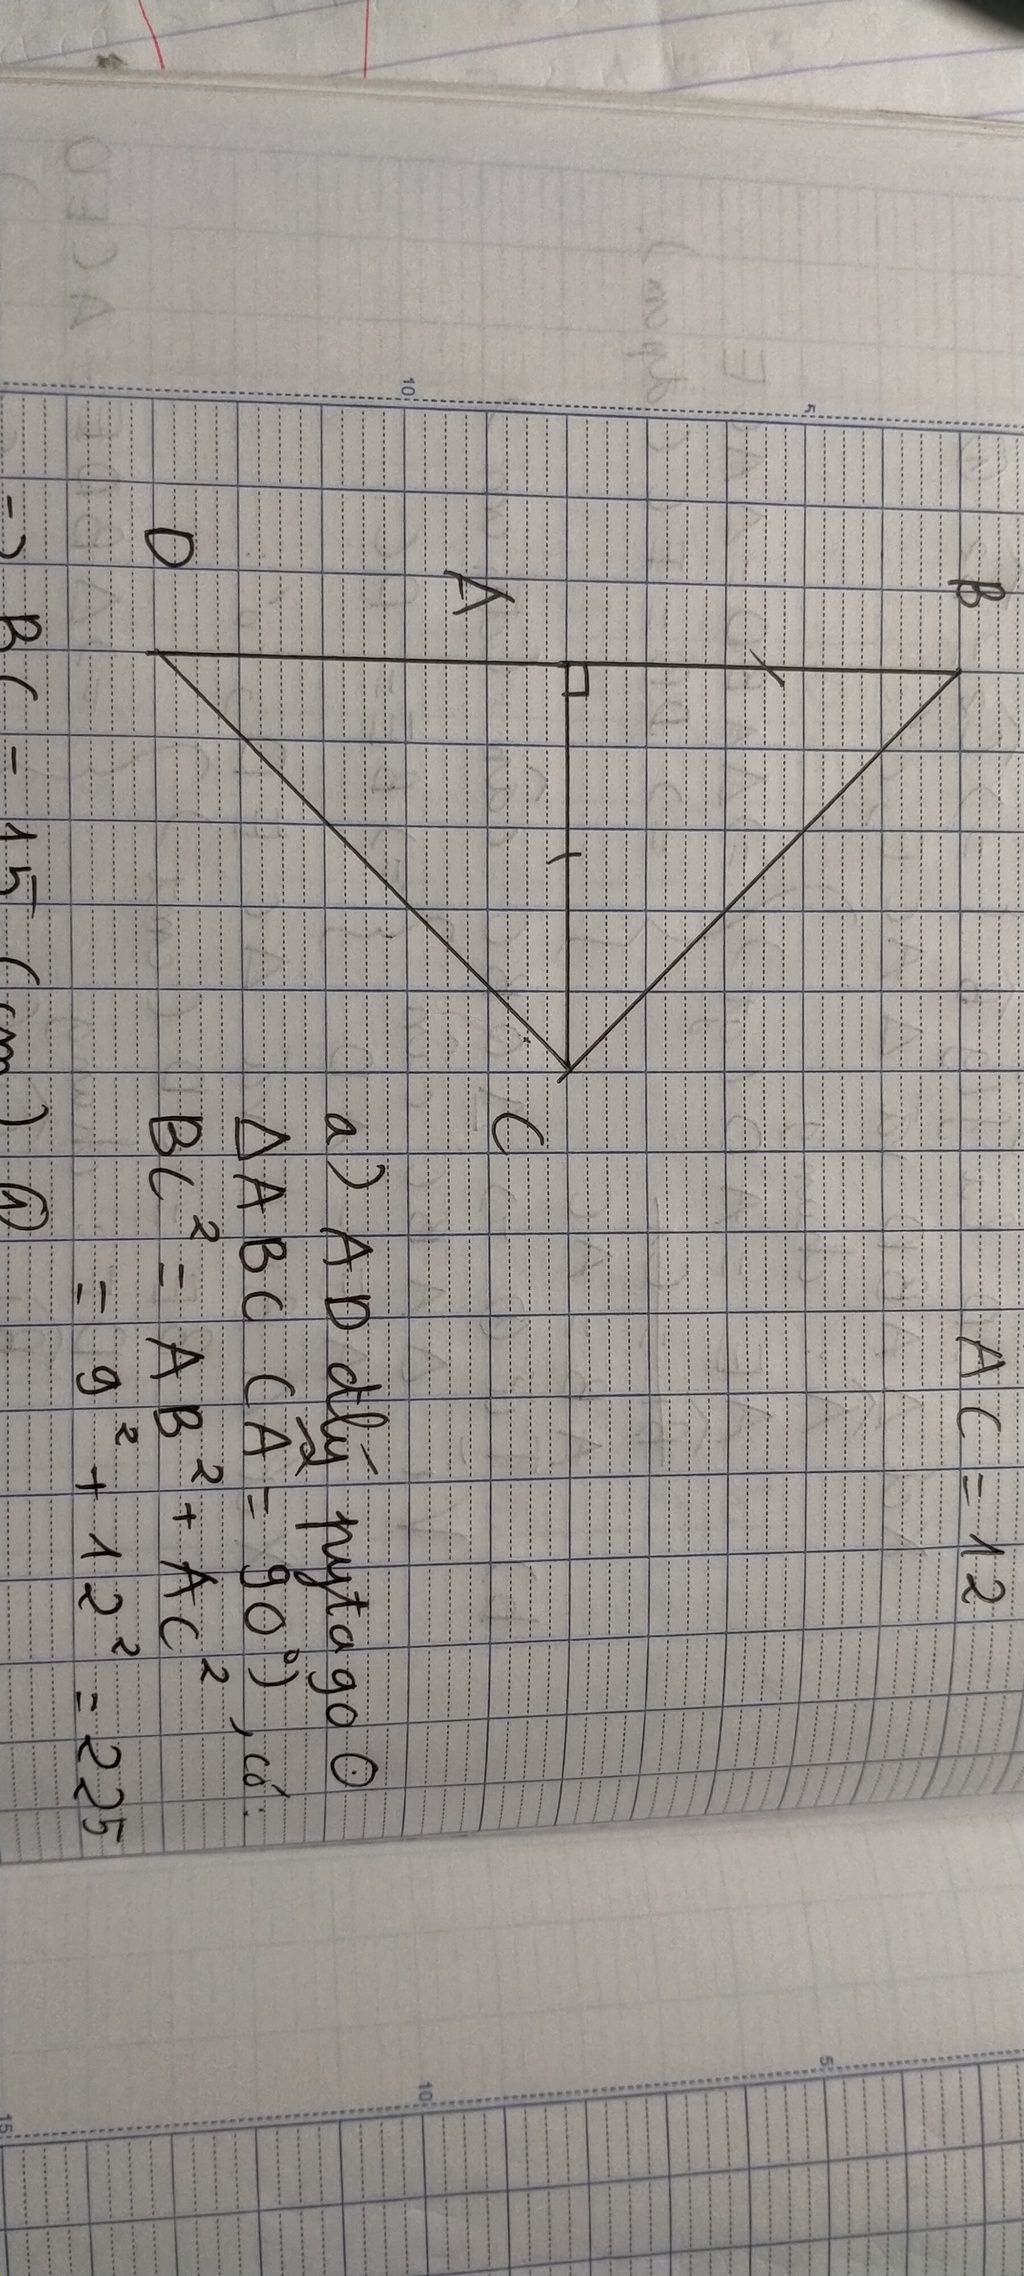 AC = 12
B
A
D
C
a) AD đlý pytago
ΔABC (Â = 90°), có:
BC² = AB² + AC²
= 9² + 12² = 225
=> BC = 15 (cm) (1)
5
10
5
10
15